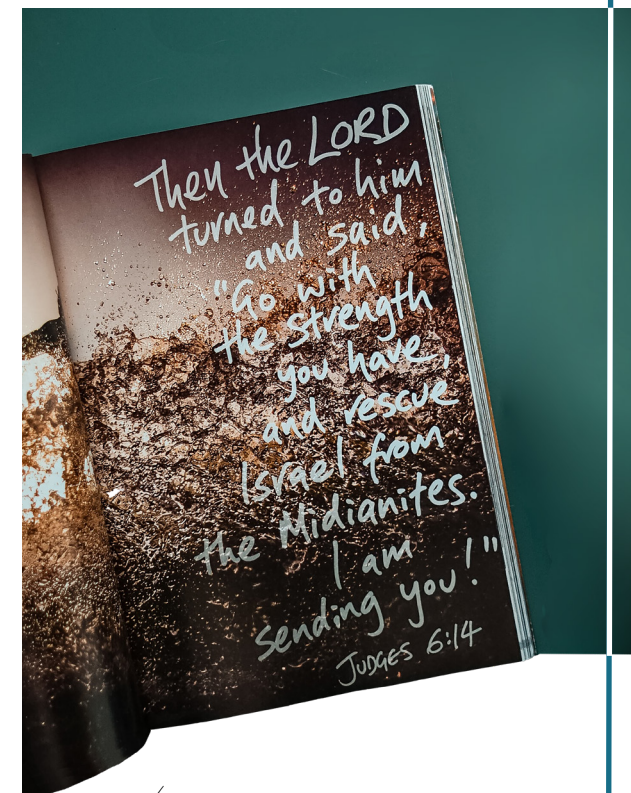 Then the LORD
turned to him
and said,
"Go with
the strength
you have,
and rescue
Israel from
the Midianites.
I am
sending you!"
JUDGES 6:14